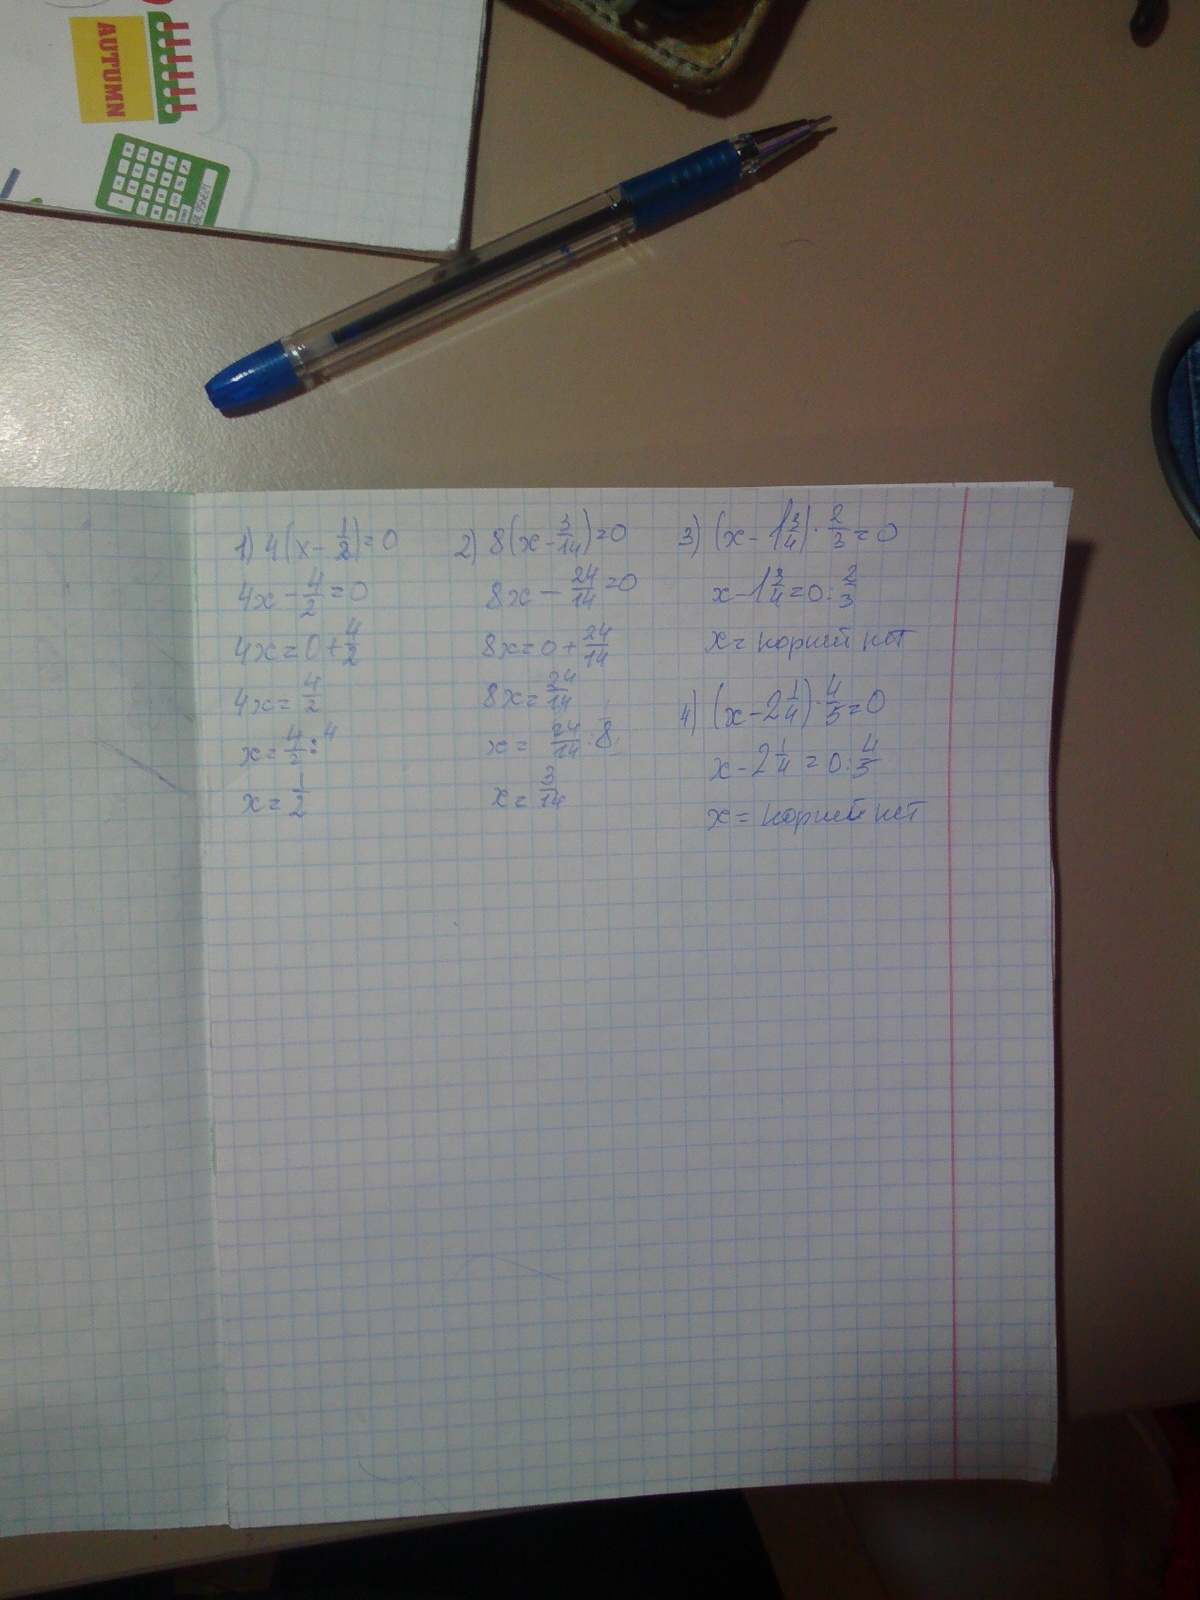 AUTUMN
1) 4(x - 1/2) = 0
4x - 4/2 = 0
4x = 0 + 4/2
4x = 4/2
x = 4/2 : 4
x = 1/2
2) 8(x - 3/14) = 0
8x - 24/14 = 0
8x = 0 + 24/14
8x = 24/14
x = 24/14 : 8
x = 3/14
3) (x - 1 3/4) · 2/3 = 0
x - 1 3/4 = 0 : 2/3
x = корней нет
4) (x - 2 1/4) · 4/5 = 0
x - 2 1/4 = 0 : 4/5
x = корней нет